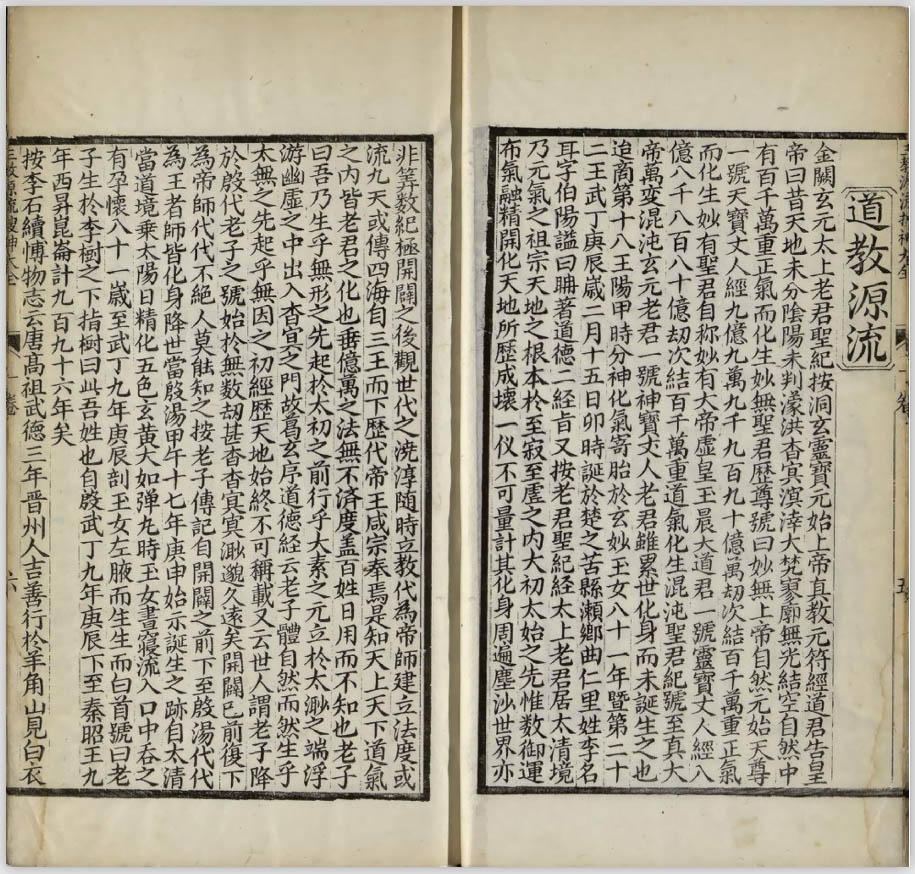 道教源流
金闕玄元太上老君聖紀按洞玄靈寶元始上帝真教元符經道君告皇
帝曰昔天地未分陰陽未判濛洪杳冥溟涬大梵寥廓無光結空自然中
有百千萬重正氣而化生妙無聖君歷尊號曰妙無上帝自然元始天尊
一號天寶丈人經九億九萬九千九百九十億萬刧次結百千萬重正氣
而化生妙有聖君自称妙有大帝虛皇玉晨大道君一號靈寶丈人經八
億八千八百八十億刧次結百千萬重道氣化生混沌聖君紀號至真大
帝萬變混沌玄元老君一號神寶丈人老君雖累世化身而未誕生之也
迨商第十八王陽甲時分神化氣寄胎於玄妙玉女八十一年暨第二十
二王武丁庚辰歲二月十五日卯時誕於楚之苦縣瀬鄉曲仁里姓李名
耳字伯陽謚曰聃著道德二經㫖又按老君聖紀經太上老君居太清境
乃元氣之祖宗天地之根本於至寂至虛之內大初太始之先惟数御運
布氣融精開化天地所歷成壊一仪不可量計其化身周遍塵沙世界亦
非筭数紀極開闢之後觀世代之澆淳隨時立教代為帝師建立法度或
流九天或傳四海自三王而下歷代帝王咸宗奉焉是知天上天下道氣
之內皆老君之化也垂億萬之法無不済度盖百姓日用而不知也老子
曰吾乃生乎無形之先起於太初之前行乎大素之元立於太渺之端浮
游幽虛之中出入杳冥之門故葛玄序道德経云老子體自然而然生乎
太無之先起乎無因之初經歷天地始終不可稱載又云世人謂老子降
於殷代老子之號始於無数刼甚杳杳冥冥渺邈久遠矣開闢已前復下
為帝師代代不絕人莫能知之按老子傳記自開闢之前下至殷湯代代
為王者師皆化身降世當殷湯甲午十七年庚申始示誕生之跡自太清
當道境乗太陽日精化五色玄黃大如弹丸時玉女晝寝流入口中吞之
有孕懷八十一嵗至武丁九年庚辰剖玉女左腋而生生而白首號曰老
子生於李樹之下指樹曰此吾姓也自殷武丁九年庚辰下至秦昭王九
年西昇崑崙計九百九十六年矣
按李石續博物志云唐髙祖武德三年晋州人吉善行於羊角山見白衣